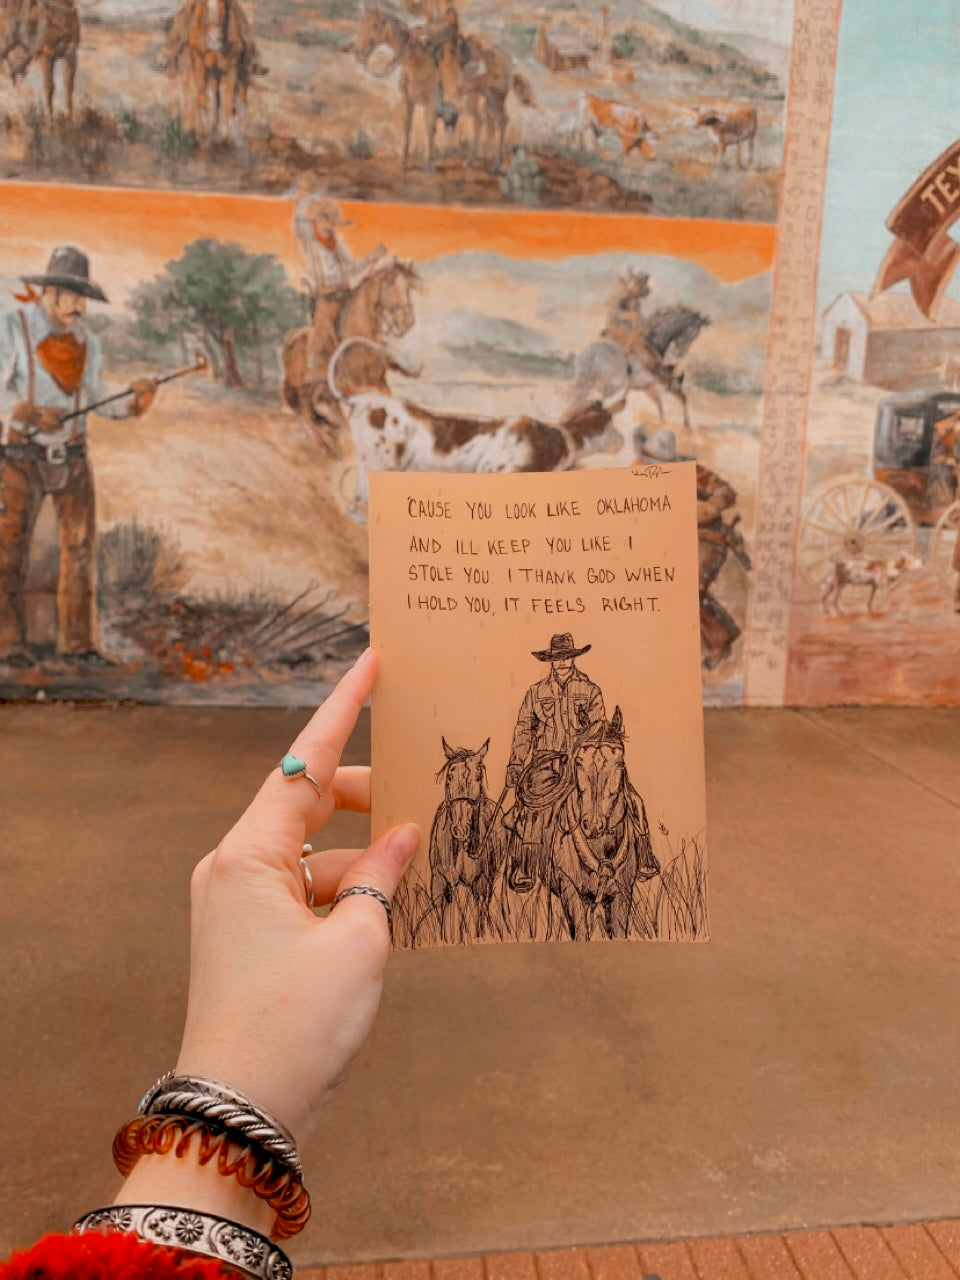 'CAUSE YOU LOOK LIKE OKLAHOMA
AND ILL KEEP YOU LIKE I
STOLE YOU. I THANK GOD WHEN
I HOLD YOU, IT FEELS RIGHT.
TEX